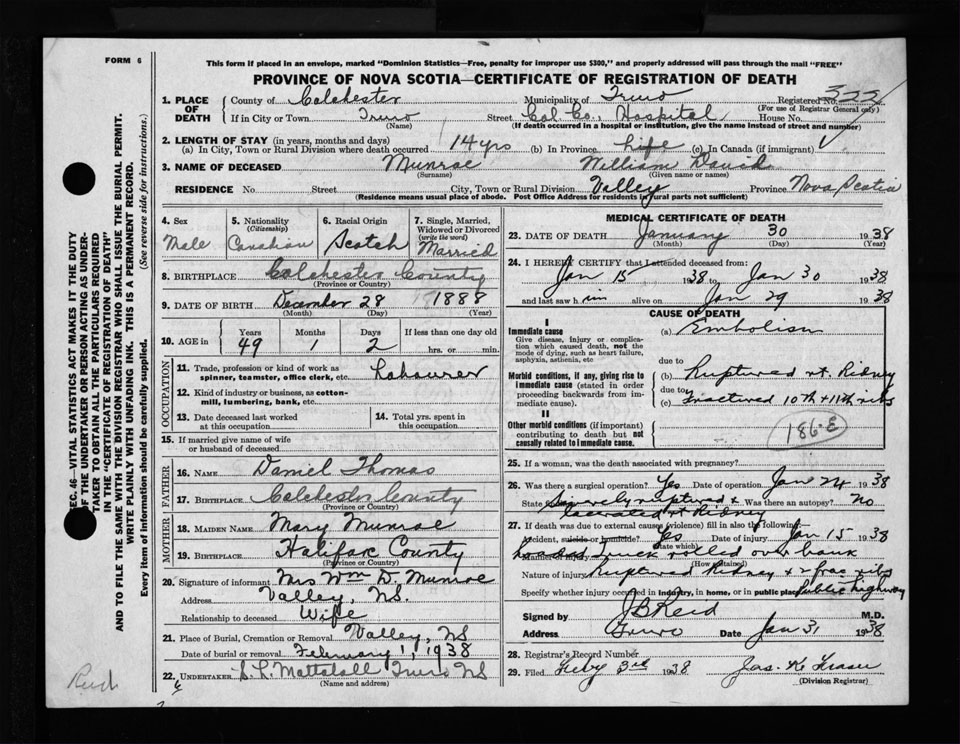 FORM 6
This form if placed in an envelope, marked "Dominion Statistics—Free, penalty for improper use $300," and properly addressed will pass through the mail "FREE"
PROVINCE OF NOVA SCOTIA—CERTIFICATE OF REGISTRATION OF DEATH
SEC. 46—VITAL STATISTICS ACT MAKES IT THE DUTY
OF THE UNDERTAKER OR PERSON ACTING AS UNDER-
TAKER TO OBTAIN ALL THE PARTICULARS REQUIRED
IN THE "CERTIFICATE OF REGISTRATION OF DEATH"
AND TO FILE THE SAME WITH THE DIVISION REGISTRAR WHO SHALL ISSUE THE BURIAL PERMIT.
WRITE PLAINLY WITH UNFADING INK. THIS IS A PERMANENT RECORD.
Every item of Information should be carefully supplied. (See reverse side for instructions.)
1. PLACE OF DEATH County of Colchester Municipality of Truro Registered No.
(For use of Registrar General only)
If in City or Town Truro Street Col. Co. Hospital House No.
(Name) (If death occurred in a hospital or institution, give the name instead of street and number)
2. LENGTH OF STAY (in years, months and days)
(a) In City, Town or Rural Division where death occurred 14 yrs (b) In Province Life (c) In Canada (if immigrant)
3. NAME OF DECEASED Munroe William David
(Surname) (Given name or names)
RESIDENCE No Street City, Town or Rural Division Valley Province Nova Scotia
(Residence means usual place of abode. Post Office Address for residents in rural parts not sufficient)
4. Sex Male
5. Nationality (Citizenship) Canadian
6. Racial Origin Scotch
7. Single, Married, Widowed or Divorced (write the word) Married
8. BIRTHPLACE Colchester County
(Province or Country)
9. DATE OF BIRTH December 28 1888
(Month) (Day) (Year)
10. AGE in Years 49 Months 1 Days 2 If less than one day old hrs. or min.
OCCUPATION
11. Trade, profession or kind of work as spinner, teamster, office clerk, etc. Labourer
12. Kind of industry or business, as cotton-mill, lumbering, bank, etc.
13. Date deceased last worked at this occupation
14. Total yrs. spent in this occupation
15. If married give name of wife or husband of deceased
FATHER
16. NAME Daniel Thomas
17. BIRTHPLACE Colchester County
(Province or Country)
MOTHER
18. MAIDEN NAME Mary Munroe
19. BIRTHPLACE Halifax County
(Province or Country)
20. Signature of informant Mrs Wm D. Munroe
Address Valley, NS.
Relationship to deceased Wife
21. Place of Burial, Cremation or Removal Valley, NS
Date of burial or removal February 1, 1938
22. UNDERTAKER S. L. Mattatall Truro NS
(Name and address)
MEDICAL CERTIFICATE OF DEATH
23. DATE OF DEATH January 30 1938
(Month) (Day) (Year)
24. I HEREBY CERTIFY that I attended deceased from:
Jan 15 1938 to Jan 30 1938
and last saw him alive on Jan 29 1938
CAUSE OF DEATH
I
Immediate cause (a) Embolism
Give disease, injury or complication which caused death, not the mode of dying, such as heart failure, asphyxia, asthenia, etc
due to
Morbid conditions, if any, giving rise to immediate cause (stated in order proceeding backwards from immediate cause). (b) Ruptured rt. Kidney
due to
(c) Fractured 10th + 11th ribs
II
Other morbid conditions (if important) contributing to death but not causally related to immediate cause.
186-E
25. If a woman, was the death associated with pregnancy?
26. Was there a surgical operation? Yes Date of operation Jan 24 1938
State findings Severely ruptured & lacerated rt Kidney Was there an autopsy? No
27. If death was due to external causes (violence) fill in also the following—
Accident, suicide or homicide? Yes Date of injury Jan 15 1938
(State which)
Manner of injury Loaded truck rolled over bank
(How sustained)
Nature of injury Ruptured Kidney + 2 frac ribs
Specify whether injury occurred in industry, in home, or in public place Public highway
Signed by J B Reid M.D.
Address Truro Date Jan 31 1938
28. Registrar's Record Number
29. Filed Feby 3rd 1938 Jas. K Fraser
(Division Registrar)